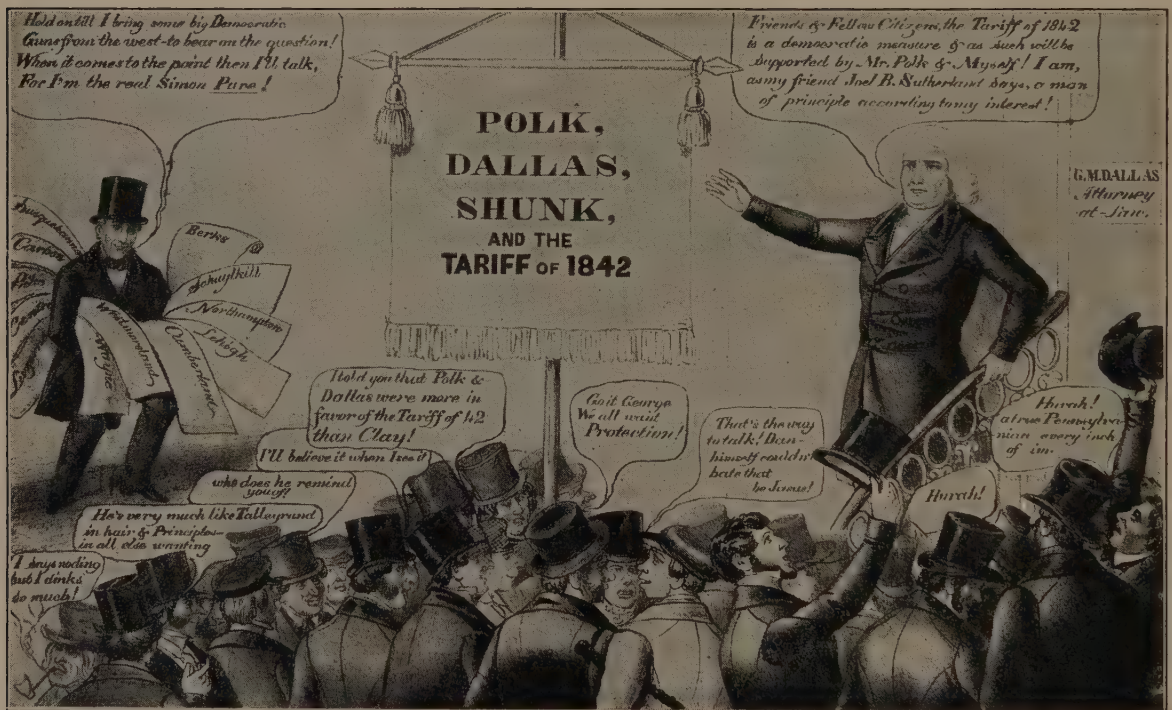 Hold on till I bring some big Democratic
Guns from the west-to bear on the question!
When it comes to the point then I'll talk,
For I'm the real Simon Pure!
Friends & Fellow Citizens, the Tariff of 1842
is a democratic measure & as such will be
supported by Mr. Polk & Myself! I am,
as my friend Joel B. Sutherland says, a man
of principle according to my interest!
POLK,
DALLAS,
SHUNK,
AND THE
TARIFF OF 1842
G.M.DALLAS
Attorney
at-Law.
Susquehanna
Carbon
Berks
Schuylkill
Northampton
Lehigh
Cumberland
Westmoreland
Wayne
I told you that Polk &
Dallas were more in
favor of the Tariff of 42
than Clay!
I'll believe it when I see it
who does he remind
you of?
He's very much like Talleyrand
in hair & Principles-
in all else wanting
I says noding
but I dinks
so much!
Go it George
We all want
Protection!
That's the way
to talk! Dan-
himself couldn't
bate that
be Jasus!
Hurah!
Hurah!
a true Pennsylva-
nian every inch
of im.